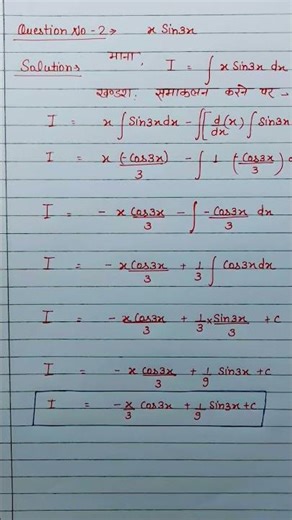 Question No-2→ x Sin3x
Solution→ माना, I = ∫ x Sin3x dx
खण्डशः समाकलन करने पर →
I = x ∫ Sin3x dx - ∫[d/dx (x) ∫ Sin3x
I = x (-Cos3x)/3 - ∫ 1 (-Cos3x/3)
I = - x Cos3x/3 - ∫ -Cos3x/3 dx
I = - x Cos3x/3 + 1/3 ∫ Cos3x dx
I = - x Cos3x/3 + 1/3 × Sin3x/3 + c
I = - x Cos3x/3 + 1/9 Sin3x + c
I = - x/3 Cos3x + 1/9 Sin3x + c